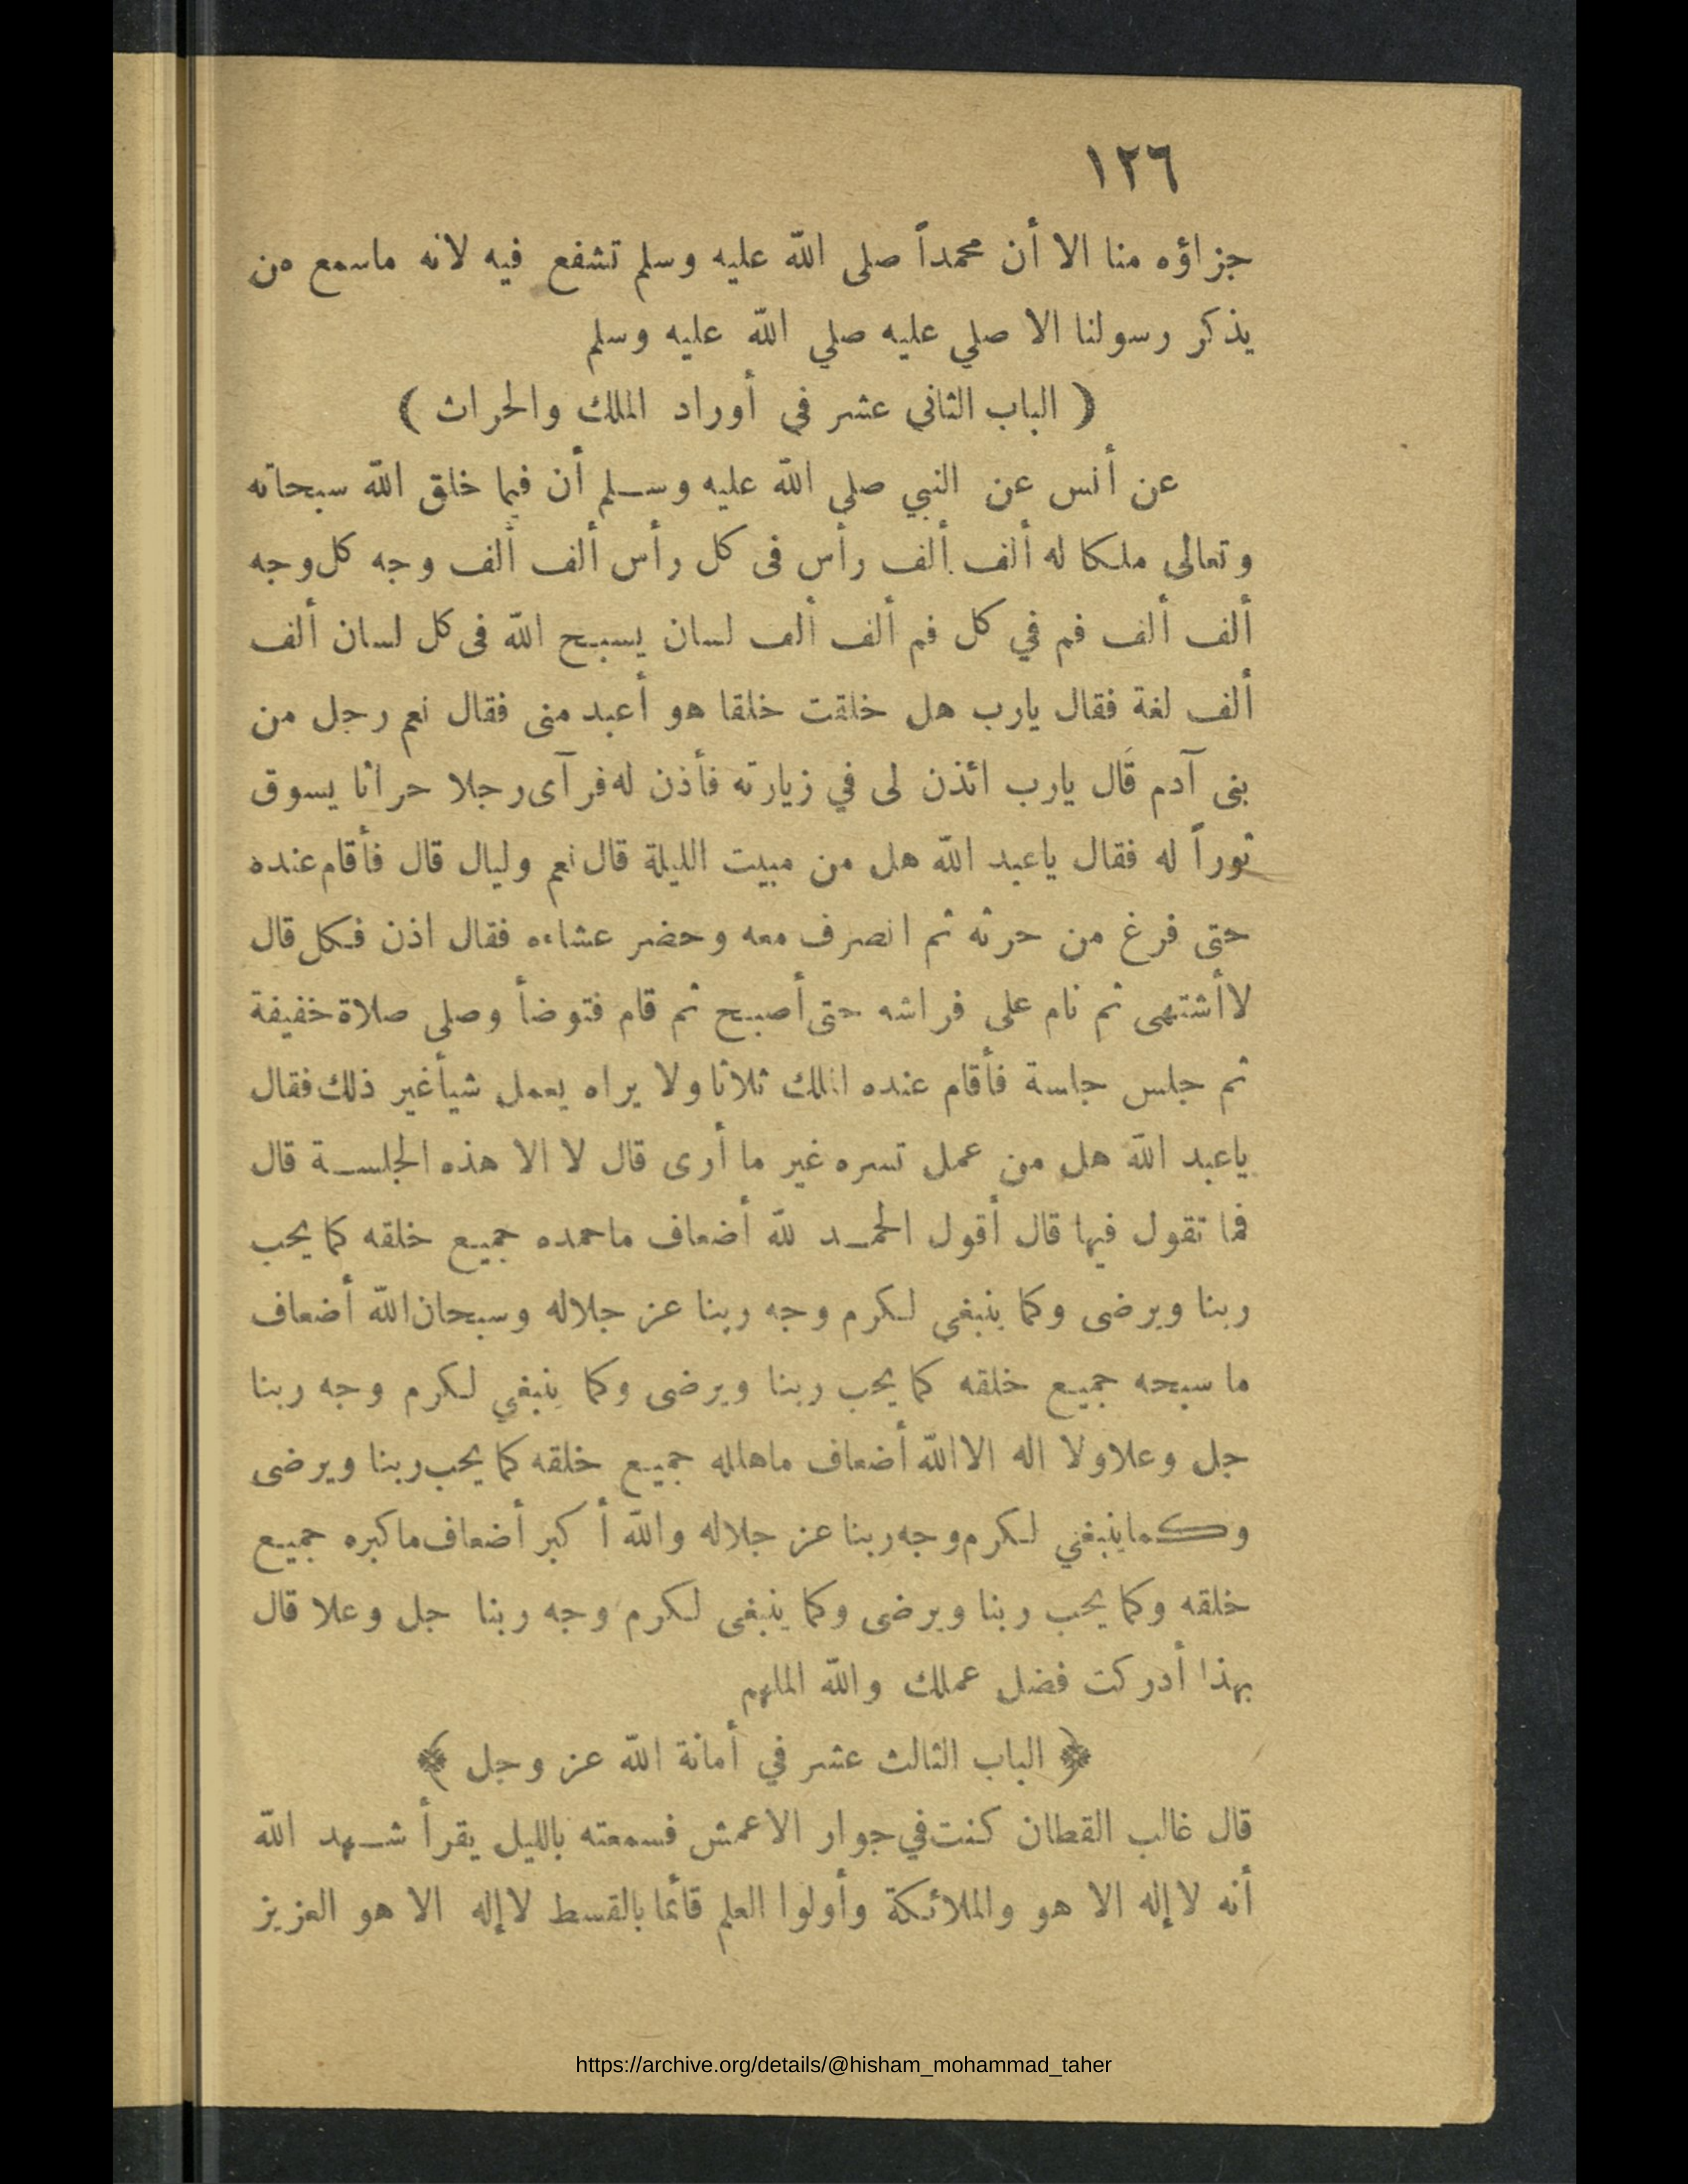 ١٢٦
جزاؤه منا الا أن محمداً صلى الله عليه وسلم تشفع فيه لانه ماسمع من
يذكر رسولنا الا صلي عليه صلي الله عليه وسلم
( الباب الثاني عشر في أوراد الملك والحراث )
عن أنس عن النبي صلى الله عليه وسلم أن فيما خلق الله سبحانه
وتعالى ملكا له ألف ألف رأس فى كل رأس ألف ألف وجه كل وجه
ألف ألف فم في كل فم ألف ألف لسان يسبح الله فى كل لسان ألف
ألف لغة فقال يارب هل خلقت خلقا هو أعبد منى فقال نعم رجل من
بنى آدم قال يارب ائذن لى في زيارته فأذن له فرآى رجلا حراثا يسوق
ثوراً له فقال ياعبد الله هل من مبيت الليلة قال نعم وليال قال فأقام عنده
حتى فرغ من حرثه ثم انصرف معه وحضر عشاءه فقال اذن فكل قال
لاأشتهى ثم نام على فراشه حتى أصبح ثم قام فتوضأ وصلى صلاة خفيفة
ثم جلس جلسة فأقام عنده الملك ثلاثا ولا يراه يعمل شيأ غير ذلك فقال
ياعبد الله هل من عمل تسره غير ما أرى قال لا الا هذه الجلسة قال
فما تقول فيها قال أقول الحمد لله أضعاف ماحمده جميع خلقه كما يحب
ربنا ويرضى وكما ينبغي لكرم وجه ربنا عز جلاله وسبحان الله أضعاف
ما سبحه جميع خلقه كما يحب ربنا ويرضى وكما ينبغي لكرم وجه ربنا
جل وعلا ولا اله الا الله أضعاف ماهلله جميع خلقه كما يحب ربنا ويرضى
وكما ينبغي لكرم وجه ربنا عز جلاله والله أكبر أضعاف ماكبره جميع
خلقه وكما يحب ربنا ويرضى وكما ينبغى لكرم وجه ربنا جل وعلا قال
بهذا أدركت فضل عملك والله الملهم
﴿ الباب الثالث عشر في أمانة الله عز وجل ﴾
قال غالب القطان كنت في جوار الاعمش فسمعته بالليل يقرأ شهد الله
أنه لا إله الا هو والملائكة وأولوا العلم قائما بالقسط لا إله الا هو العزيز
https://archive.org/details/@hisham_mohammad_taher